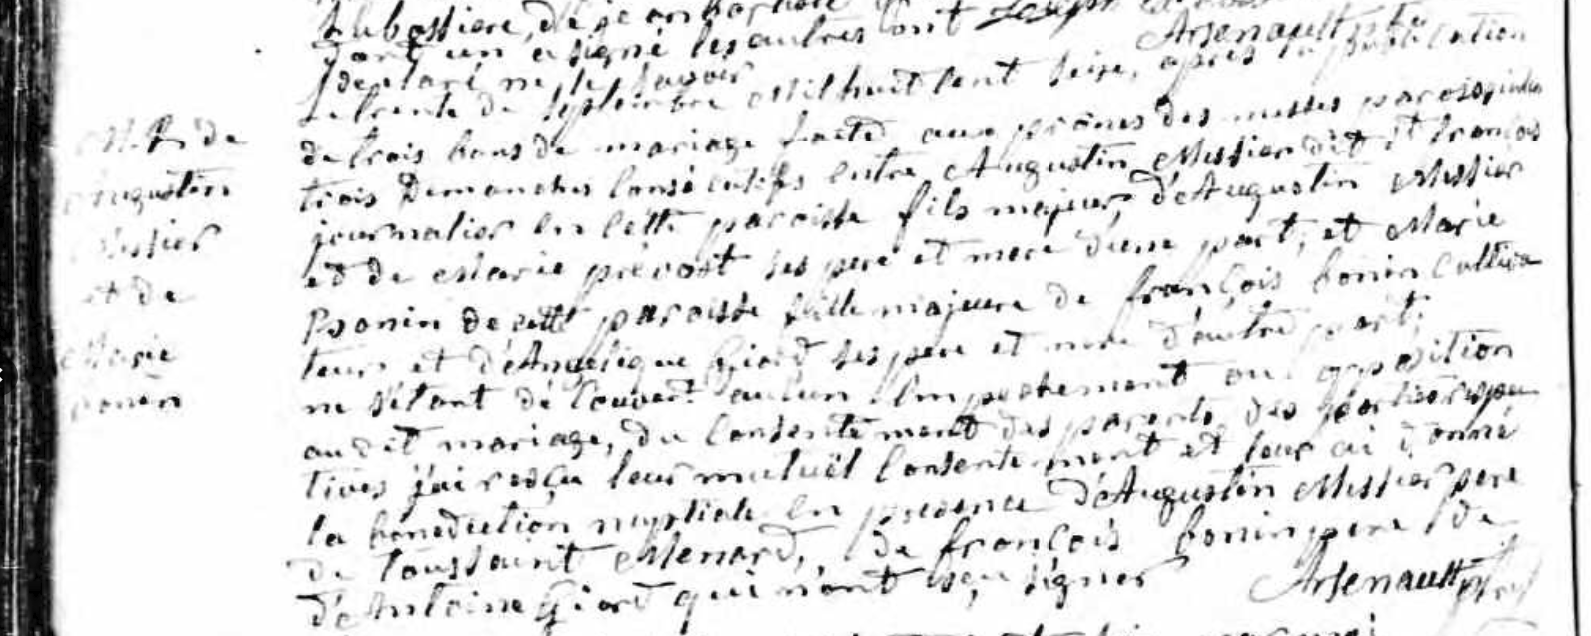 Labossiere, de jean
dont un a signé les autres ont Joseph
déclaré ne le savoir Arsenault ptre
Le trente de septembre Mil huit cent seize, après la publication
M. R. de
de trois bans de mariage faite aux prônes des messes paroissiales
Augustin
trois Dimanches consécutifs entre Augustin Messier dit St françois
Messier
journalier en cette paroisse fils majeur, d'Augustin Messier
et de
et de Marie prévost ses pere et mere d'une part, et Marie
Bonin de cette paroisse fille majeure de françois bonin cultiva
Marie
teur et d'Angelique Giard ses pere et mere d'autre part;
bonin
ne s'étant découvert aucun Empechement ou opposition
audit mariage, du consentement des parents des parties respec
tives j'ai resçu leur mutuël consentement et leur ai donné
la benediction nuptiale en presence d'Augustin Messier pere
de toussaint Menard, de françois bonin pere de
d'Antoine Giard qui n'ont sçu signer Arsenault ptre